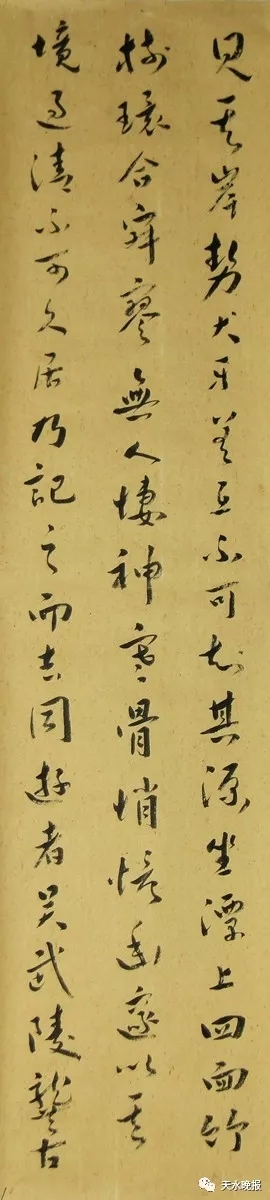 見其岸勢犬牙差互不可知其源坐潭上四面竹
樹環合寂寥無人悽神寒骨悄愴幽邃以其
境過清不可久居乃記之而去同遊者吴武陵龔古
天水晚报